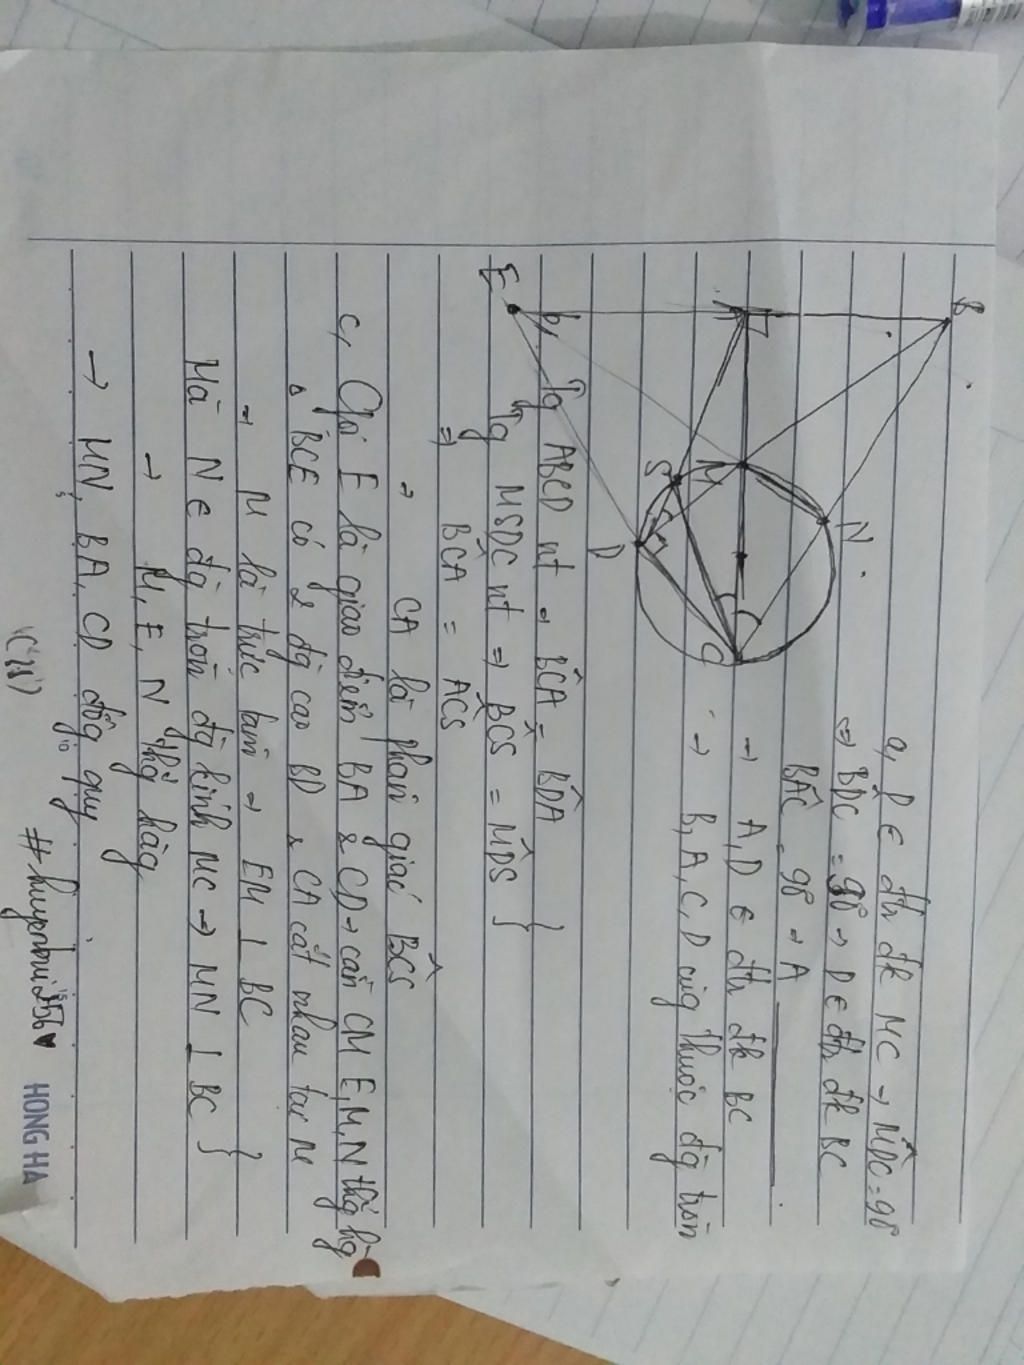 B
A
E
M
S
N
D
C
a, D ∈ đtr đk MC → M̂DC = 90
⇒ B̂DC = 90 → D ∈ đtr đk BC
BÂC = 90 → A
→ A, D ∈ đtr đk BC
→ B, A, C, D cùg thuộc đg tròn
b, Tg ABCD nt → BĈA = BD̂A
Tg MSDC nt ⇒ BĈS = MD̂S }
⇒ BĈA = AĈS
→ CA là phân giác BĈS
c, Gọi E là giao điểm BA & CD → cần CM E, M, N thg hg
Δ BCE có 2 đg cao BD & CA cắt nhau tại M
→ M là trực tâm → EM ⊥ BC
Mà N ∈ đg tròn đg kính MC → MN ⊥ BC }
→ M, E, N thg hàg
→ MN, BA, CD đồg quy
#huyenhui256♥
HONG HA